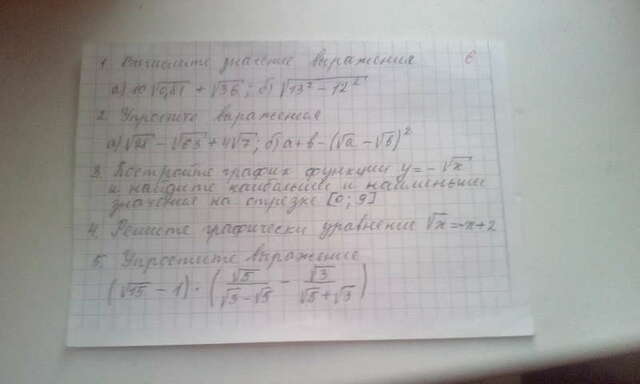 1. Вычислите значение выражения 6
а) 10√0,81 + √36; б) √13² - 12²
2. Упростите выражения
а) √28 - √63 + 4√7; б) а + в - (√а - √в)²
3. Постройте график функции y = - √x
и найдите наибольшее и наименьш
значения на отрезке [0; 9]
4. Решите графически уравнение √x = -x+2
5. Упростите выражение
(√15 - 1) · (√5/(√3 - √5) - √3/(√5 + √3))